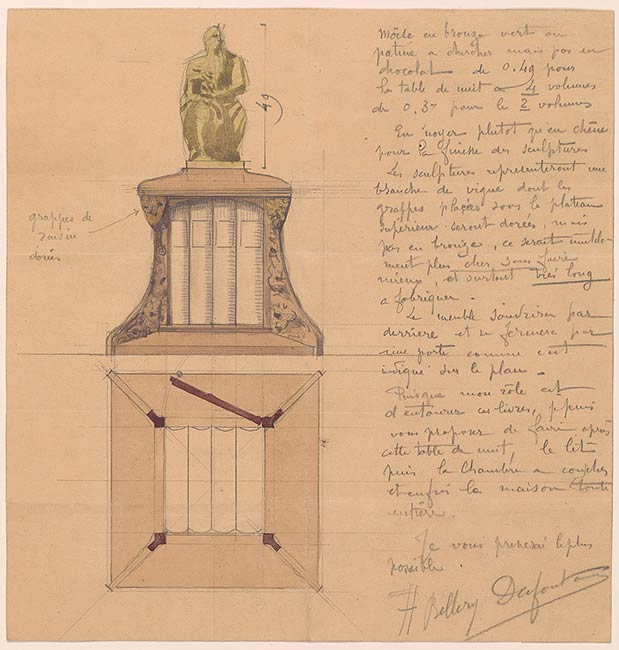 49
grappes de
raisin
dorées
Möise en bronze vert ou
patine a chercher mais pas en
chocolat de 0.49 pour
la table de nuit a 4 volumes
de 0.37 pour le 2 volumes
En noyer plutot qu'en chêne
pour la finesse des sculptures
Les sculptures representeront une
branche de vigne dont les
grappes placées sous le plateau
superieur seront dorées, mais
pas en bronze, ce serait inutile-
ment plus cher sans faire
mieux, et surtout très long
a fabriquer.
Le meuble s'ouvrira par
derriere et se fermera par
une porte comme c'est
indiqué sur le plan.
Puisque mon rôle est
d'entourer ces livres, je puis
vous proposer de faire après
cette table de nuit, le lit
puis la chambre a coucher
et enfin la maison toute
entière.
Je vous prendrai le plus
possible
H Bellery Desfontaines